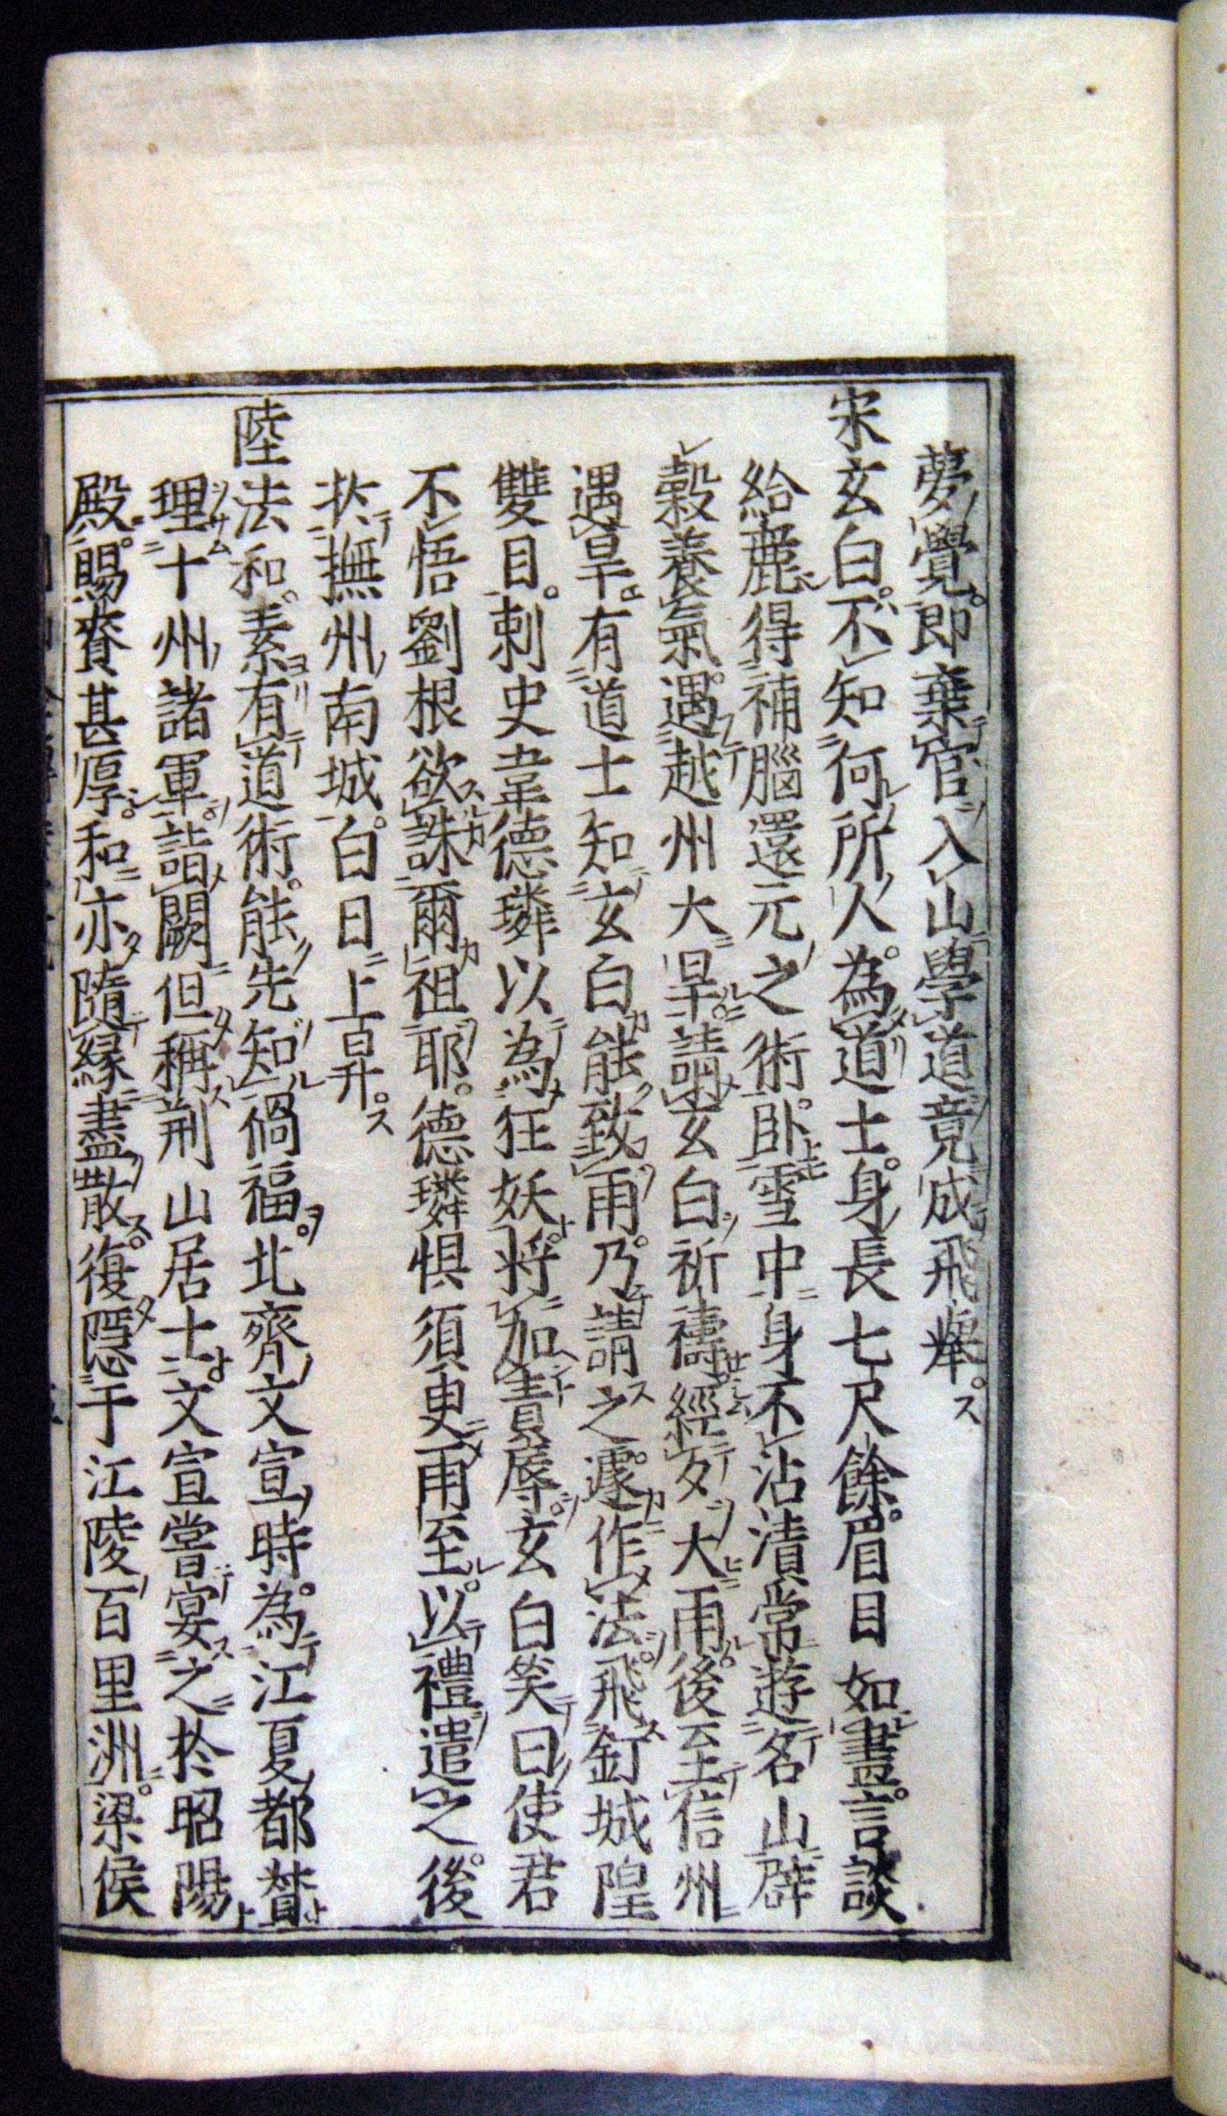 夢覺即棄官入山學道竟成飛舉
宋玄白不知何所人為道士身長七尺餘眉目如畫言談
給麗得補腦還元之術卧雪中身不沾漬常遊名山辟
穀養氣遇越州大旱請玄白祈禱經夕大雨後至信州
遇旱有道士知玄白能致雨乃請之遽作法飛釘城隍
雙目刺史韋德璘以為狂妖將加責辱玄白笑曰使君
不悟劉根欲誅爾祖耶德璘惧須臾雨至以禮遣之後
於撫州南城白日上昇
陸法和素有道術能先知禍福北齊文宣時為江夏都督
理十州諸軍詣闕但稱荊山居士文宣嘗宴之於昭陽
殿賜賚甚厚和亦隨緣盡散復隱于江陵百里洲梁侯